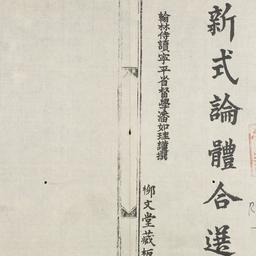 新式論體合選
翰林侍讀寧平省督學潘如珪謹撰
柳文堂藏板